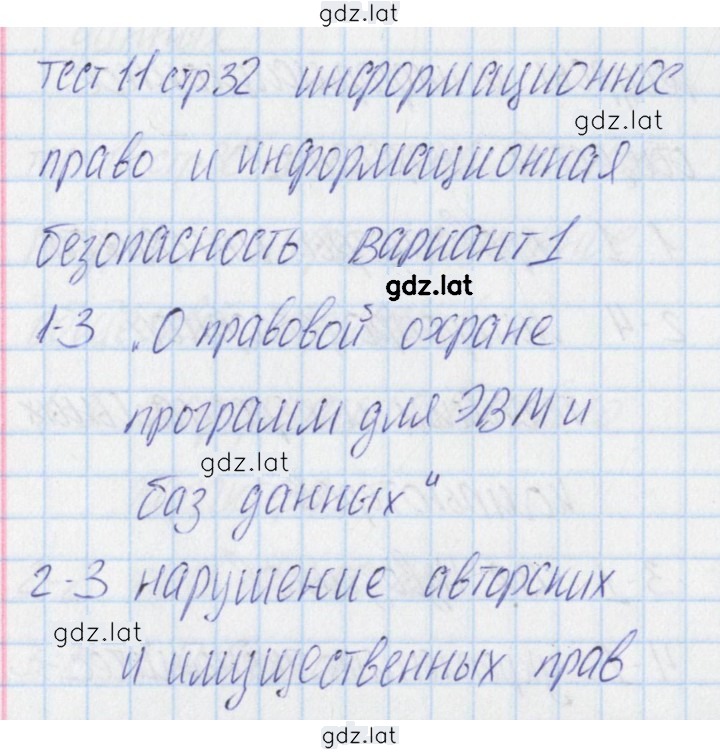 gdz.lat
тест 11 стр 32 информационное
gdz.lat
право и информационная
безопасность вариант 1
gdz.lat
1-3 „О правовой охране
программ для ЭВМ и
gdz.lat
баз данных“
2-3 нарушение авторских
gdz.lat
и имущественных прав
gdz.lat